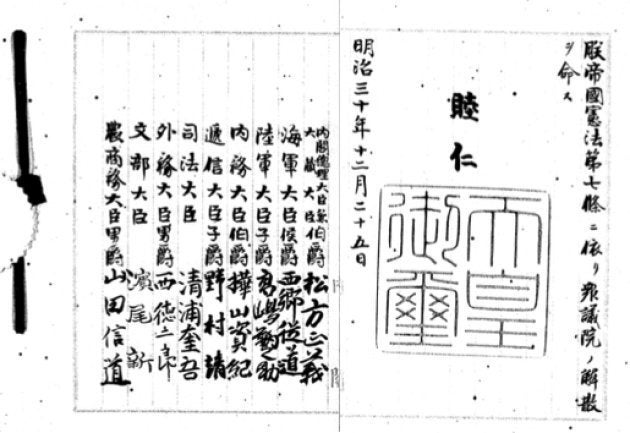 朕帝國憲法第七條ニ依リ衆議院ノ解散
ヲ命ス
睦仁
天皇御璽
明治三十年十二月二十五日
內閣總理大臣兼
大藏大臣伯爵松方正義
海軍大臣侯爵西鄕從道
陸軍大臣子爵高嶋鞆之助
內務大臣伯爵樺山資紀
遞信大臣子爵野村靖
司法大臣淸浦奎吾
外務大臣男爵西德二郞
文部大臣濱尾新
農商務大臣男爵山田信道